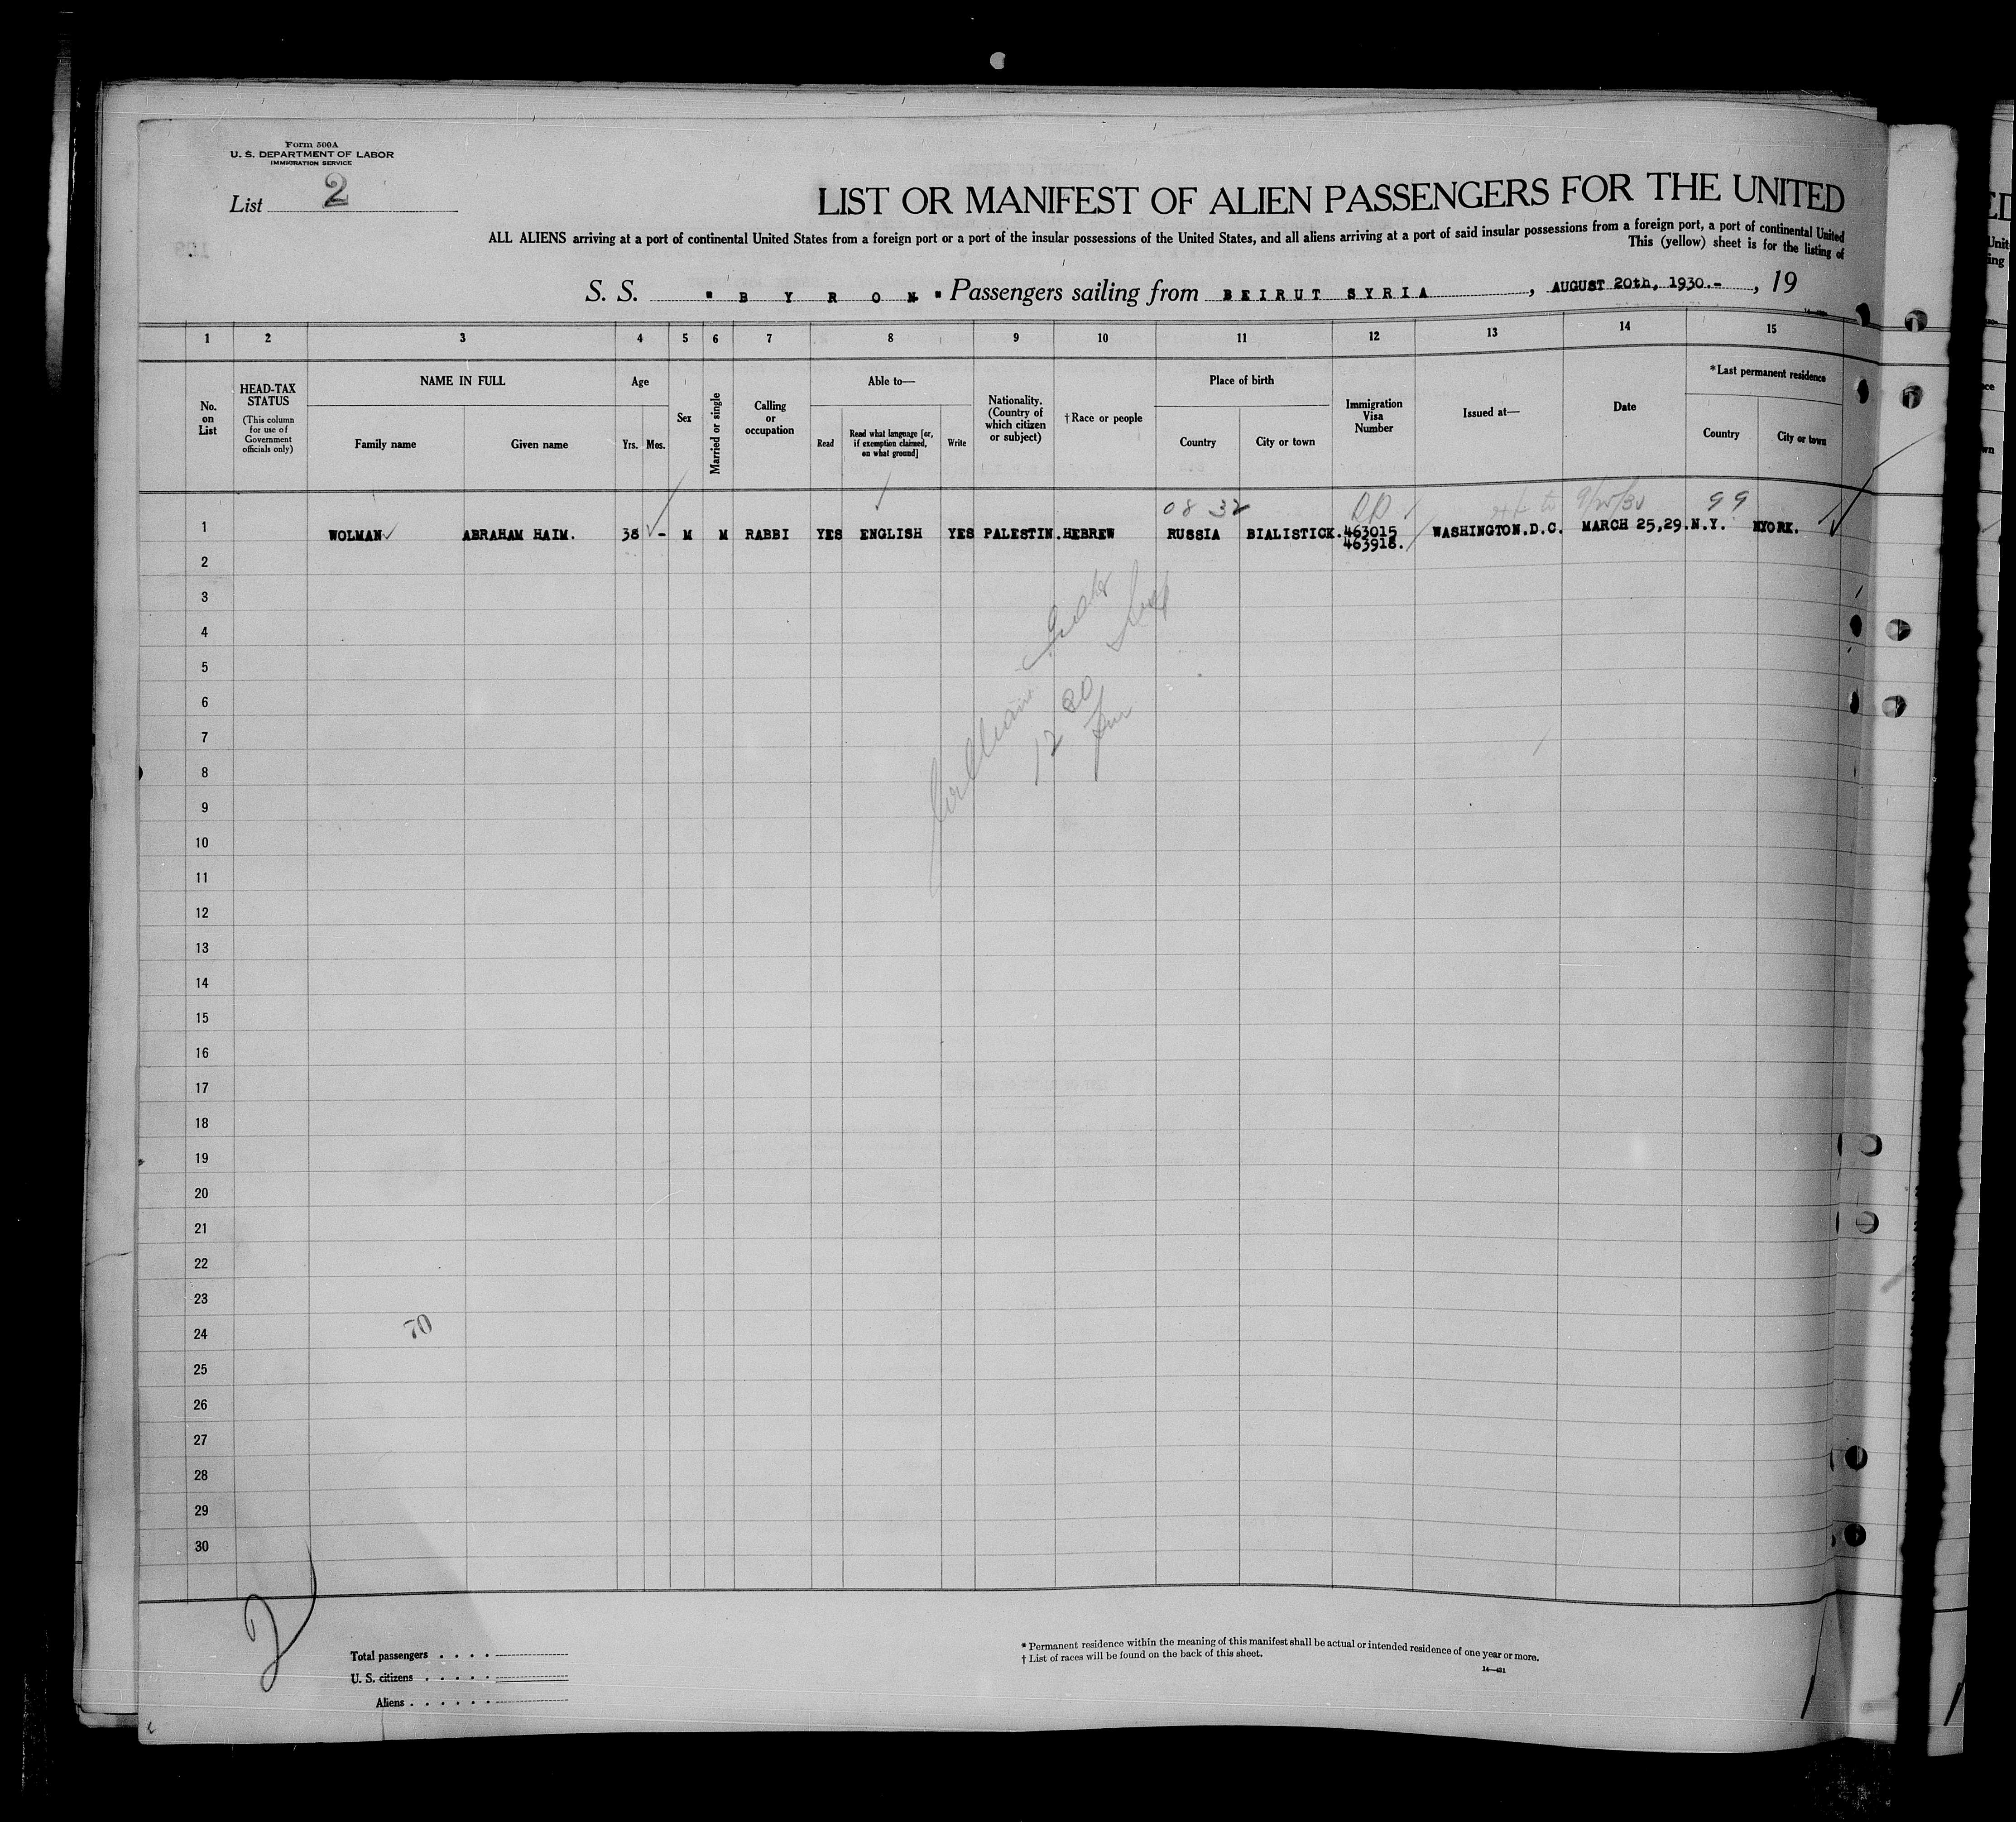 Form 500A
U. S. DEPARTMENT OF LABOR
IMMIGRATION SERVICE
List 2
LIST OR MANIFEST OF ALIEN PASSENGERS FOR THE UNITED
ALL ALIENS arriving at a port of continental United States from a foreign port or a port of the insular possessions of the United States, and all aliens arriving at a port of said insular possessions from a foreign port, a port of continental United
This (yellow) sheet is for the listing of
S. S. " B Y R O N " Passengers sailing from BEIRUT SYRIA, AUGUST 20th, 1930.-, 19
1 2 3 4 5 6 7 8 9 10 11 12 13 14 15
No. on List
HEAD-TAX STATUS
(This column for use of Government officials only)
NAME IN FULL
Family name
Given name
Age
Yrs. Mos.
Sex
Married or single
Calling or occupation
Able to—
Read
Read what language [or, if exemption claimed, on what ground]
Write
Nationality. (Country of which citizen or subject)
†Race or people
Place of birth
Country
City or town
Immigration Visa Number
Issued at—
Date
*Last permanent residence
Country
City or town
08 32 9/20/30 99
1 WOLMAN ABRAHAM HAIM. 38 - M M RABBI YES ENGLISH YES PALESTIN. HEBREW RUSSIA BIALISTICK. 463015 WASHINGTON.D.C. MARCH 25,29. N.Y. NYORK.
463918.
2
3
4
5
6
7
8
9
10
11
12
13
14
15
16
17
18
18
19
20
21
22
23
24
70
25
26
27
28
29
30
2
Total passengers
U. S. citizens
Aliens
* Permanent residence within the meaning of this manifest shall be actual or intended residence of one year or more.
† List of races will be found on the back of this sheet.